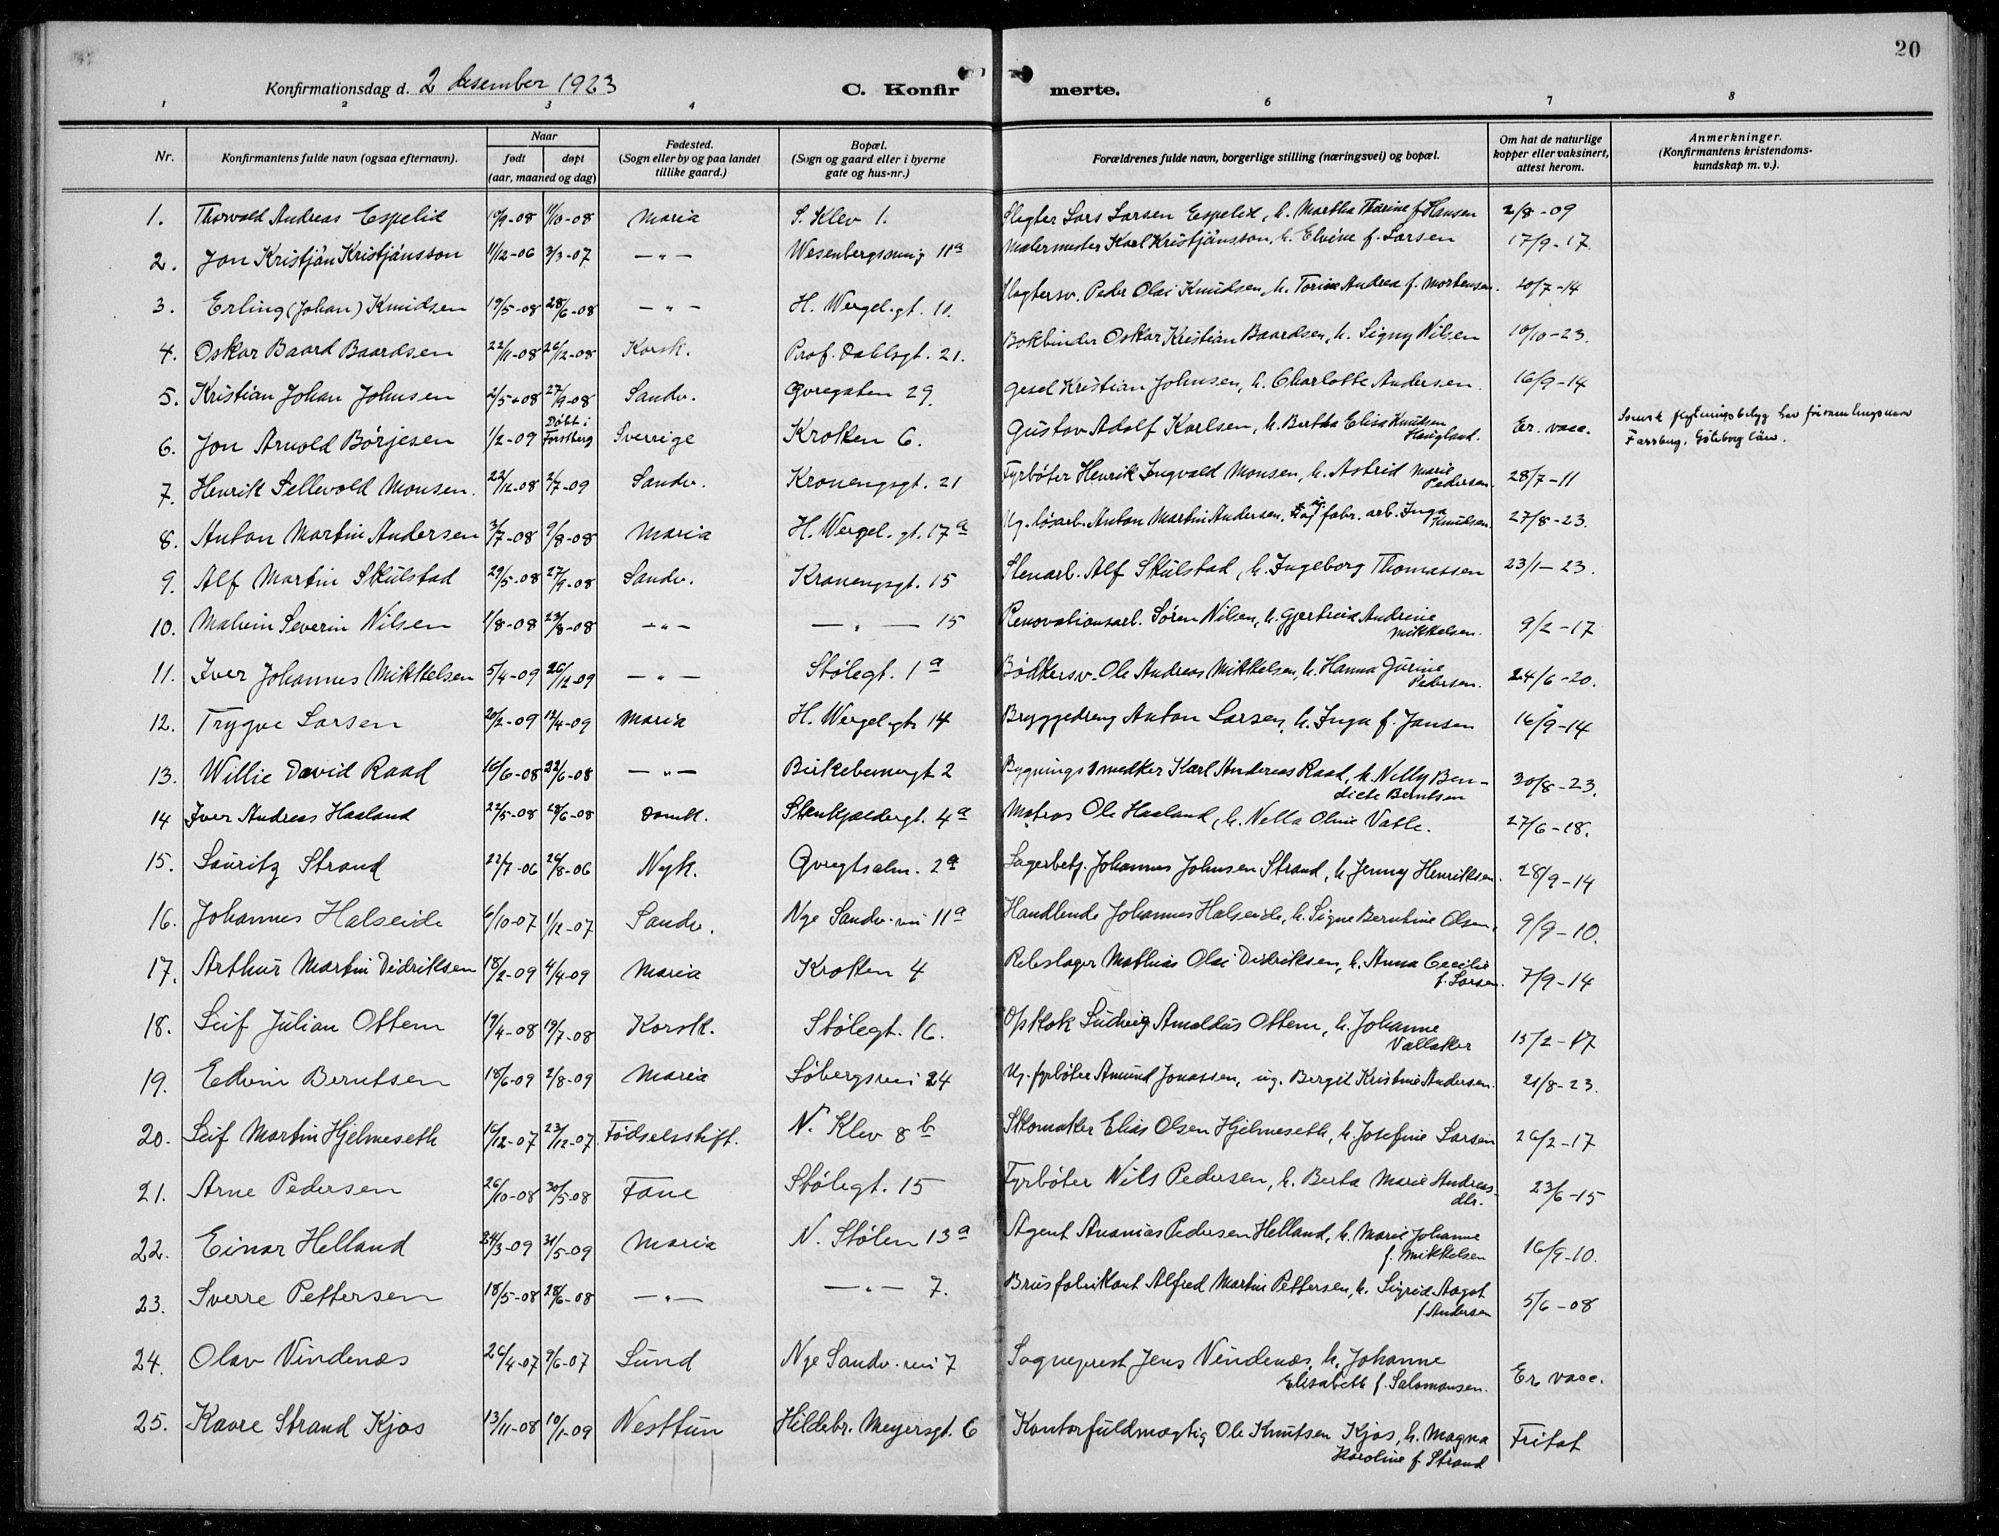 20
Konfirmationsdag d. 2 desember 1923 C. Konfirmerte.
1 2 3 4 6 7 8
Nr. Konfirmantens fulde navn (ogsaa efternavn). Naar født døpt (aar, maaned og dag) Fødested. (Sogn eller by og paa landet tillike gaard.) Bopæl. (Sogn og gaard eller i byerne gate og hus-nr.) Forældrenes fulde navn, borgerlige stilling (næringsvei) og bopæl. Om hat de naturlige kopper eller vaksinert, attest herom. Anmerkninger. (Konfirmantens kristendomskundskap m. v.)
1. Thorvald Andreas Espelid 10/9-08 11/10-08 Maria S. Klev 1. Slagter Lars Larsen Espelid, h. Martha Thorine f. Hansen 2/8-09
2. Jon Kristján Kristjánsson 11/12-06 3/3-07 —"— Wesenbergsmug 11a Malermester Karl Kristjánsson, h. Elvine f. Larsen 17/9-17.
3. Erling (Johan) Knudsen 19/5-08 28/6-08 —"— H. Wergel. gt. 11. Slagtersv. Peder Olai Knudsen, h. Torine Andrea f. Mortensen. 20/7-14
4. Oskar Baard Baardsen 22/11-08 26/12-08 Korsk. Prof. Dahlsgt. 21. Bokbinder Oskar Kristian Baardsen, h. Signy Nilsen 10/10-23.
5. Kristian Johan Johnsen 2/5-08 27/9-08 Sandv. Øvregaten 29. Gesel Kristian Johnsen, h. Charlotte Andersen. 16/9-14
6. Jon Arnold Børjesen 1/2-09 Døbt i Forssberg Sverrige Kroken 6. Gustav Adolf Karlsen, h. Bertha Elisa Knutsen Haugland. Er. vacc. Svensk flytningsbetyg har Färssberg, Göteborg län.
7. Henrik Sellevold Monsen. 22/12-08 2/7-09 Sandv. Kronengsgt. 21 Fyrbøter Henrik Ingvald Monsen, h. Astrid Marie Pedersen. 28/7-11
8. Anton Martin Andersen 3/7-08 9/8-08 Maria H. Wergel. gt. 17a Ug. løsarb. Anton Martin Andersen, og ug. fabr. arb. Inga Knutsen. 27/8-23.
9. Alf Martin Skulstad 29/5-08 27/9-08 Sandv. Kronengsgt. 15 Stenarb. Alf Skulstad, h. Ingeborg Thomassen 23/1-23.
10. Malvin Severin Nilsen 1/8-08 23/8-08 —"— —"— 15 Renovationsarb. Søren Nilsen, h. Gjertrud Andrine Mikkelsen. 9/2-17
11. Iver Johannes Mikkelsen 5/4-09 26/12-09 —"— Stølegt. 1a Bødkersv. Ole Andreas Mikkelsen, h. Hanna Gurine Pedersen. 24/6-20.
12. Trygve Larsen 20/2-09 12/4-09 Maria H. Wergel. gt. 14 Bryggedreng Anton Larsen, h. Inga f. Jansen 16/9-14
13. Willie David Raad 16/6-08 22/6-08 —"— Birkebeinergt 2 Bygningssmedker Karl Andreas Raad, h. Nelly Bendicte Berntsen 30/8-23.
14 Iver Andreas Haaland 22/5-08 28/6-08 Domk. Stenkjældergt. 4a Matros Ole Haaland, h. Nella Oline Vatle. 27/6-18.
15. Lauritz Strand 22/7-06 26/8-06 Nyk. Øvregtsalm. 2a Lagerbetj. Johannes Johnsen Strand, h. Jenny Henriksen. 28/9-14
16. Johannes Halseide 6/10-07 1/12-07 Sandv. Nye Sandv. vei 11a Handlende Johannes Halseide, h. Signe Berntine Olsen. 9/9-10.
17. Arthur Martin Didriksen 18/2-09 4/4-09 Maria Kroken 4 Rebslager Mathias Olai Didriksen, h. Anna Cecilie f. Larsen. 7/9-14
18. Leif Julian Ottem 19/4-08 19/7-08 Korsk. Stølegt. 16. Opskok Ludvig Arnoldus Ottem, h. Johanne Vallaker 15/2-17
19. Edvin Berntsen 18/6-09 2/8-09 Maria Søbergsvei 24 Ug. fyrbøter Amund Jonassen, ug. Bergit Kristine Andersen. 21/8-23.
20. Leif Martin Hjelmeseth 16/12-07 23/12-07 Fødselsstift. N. Klev 8b Skomaker Elias Olsen Hjelmeseth, h. Josefine Larsen 26/2-17
21. Arne Pedersen 26/10-08 30/5-08 Fane Stølegt. 15 Fyrbøter Nils Pedersen, h. Berta Marie Andreasdtr. 23/6-15
22. Einar Helland 24/3-09 31/5-09 Maria N. Stølen 13a Agent Ananias Pedersen Helland, h. Marie Johanne f. Mikkelsen 16/9-10.
23. Sverre Pettersen 18/5-08 28/6-08 —"— —"— 7. Brusfabrikant Alfred Martin Pettersen, h. Sigrid Aagot f. Andersen 5/6-08
24. Olav Vindenæs 26/4-07 9/6-07 Sund Nye Sandv. vei 7 Sogneprest Jens Vindenæs, h. Johanne Elisabeth f. Salomonsen. Er vacc.
25. Kaare Strand Kjos 13/11-08 10/1-09 Nesttun Hildebr. Meyersgt. 6 Kontorfuldmægtig Ole Knutsen Kjos, h. Magna Karoline f. Strand Fritat